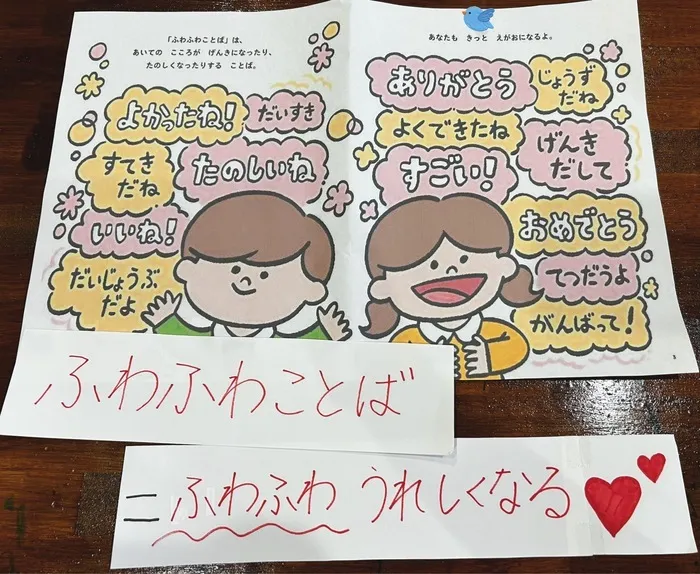 「ふわふわことば」は、
あいての こころが げんきになったり、
たのしくなったりする ことば。
よかったね!
だいすき
すてき
だね
たのしいね
いいね!
だいじょうぶ
だよ
あなたも きっと えがおになるよ。
ありがとう
じょうず
だね
よくできたね
げんき
だして
すごい!
おめでとう
てつだうよ
がんばって!
3
ふわふわことば
=ふわふわ うれしくなる